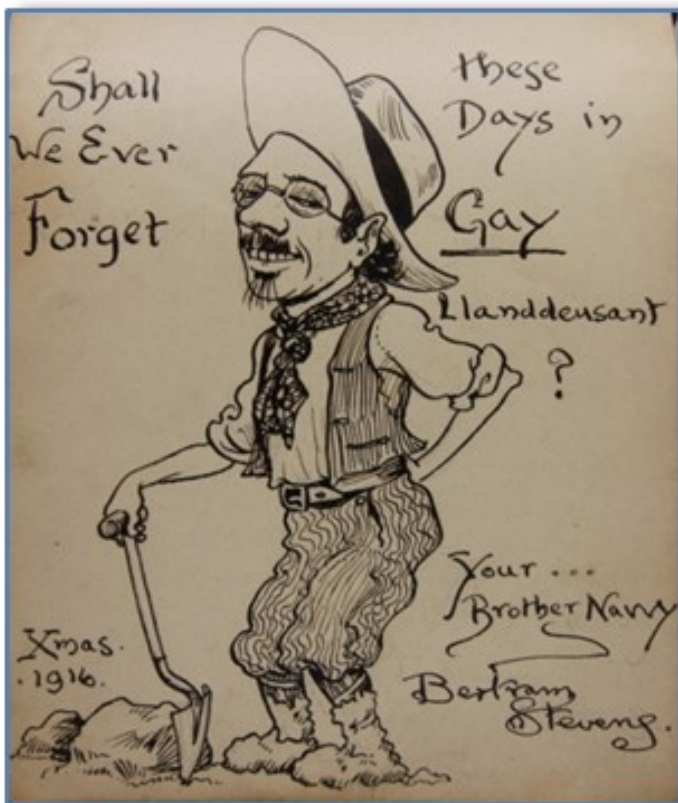 Shall
We Ever
Forget
these
Days in
Gay
Llanddeusant
?
Your ...
Brother Navvy
Bertram
Stevens.
Xmas.
. 1916.